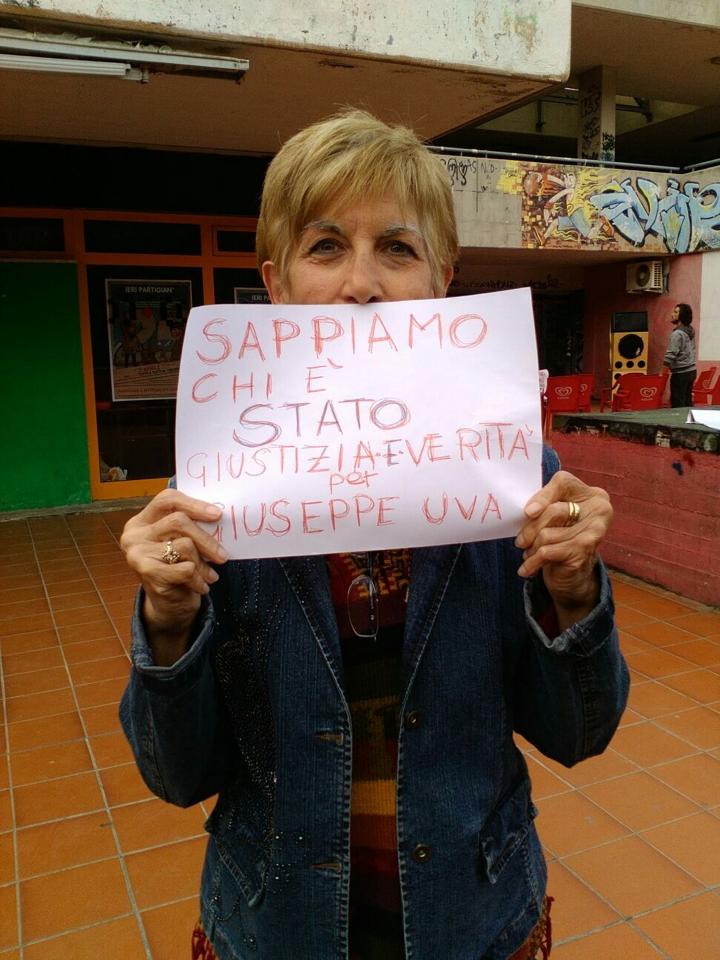 SAPPIAMO
CHI È
STATO
GIUSTIZIA E VERITÀ
per
GIUSEPPE UVA
IERI PARTIGIAN'
IERI PARTIGIAN'